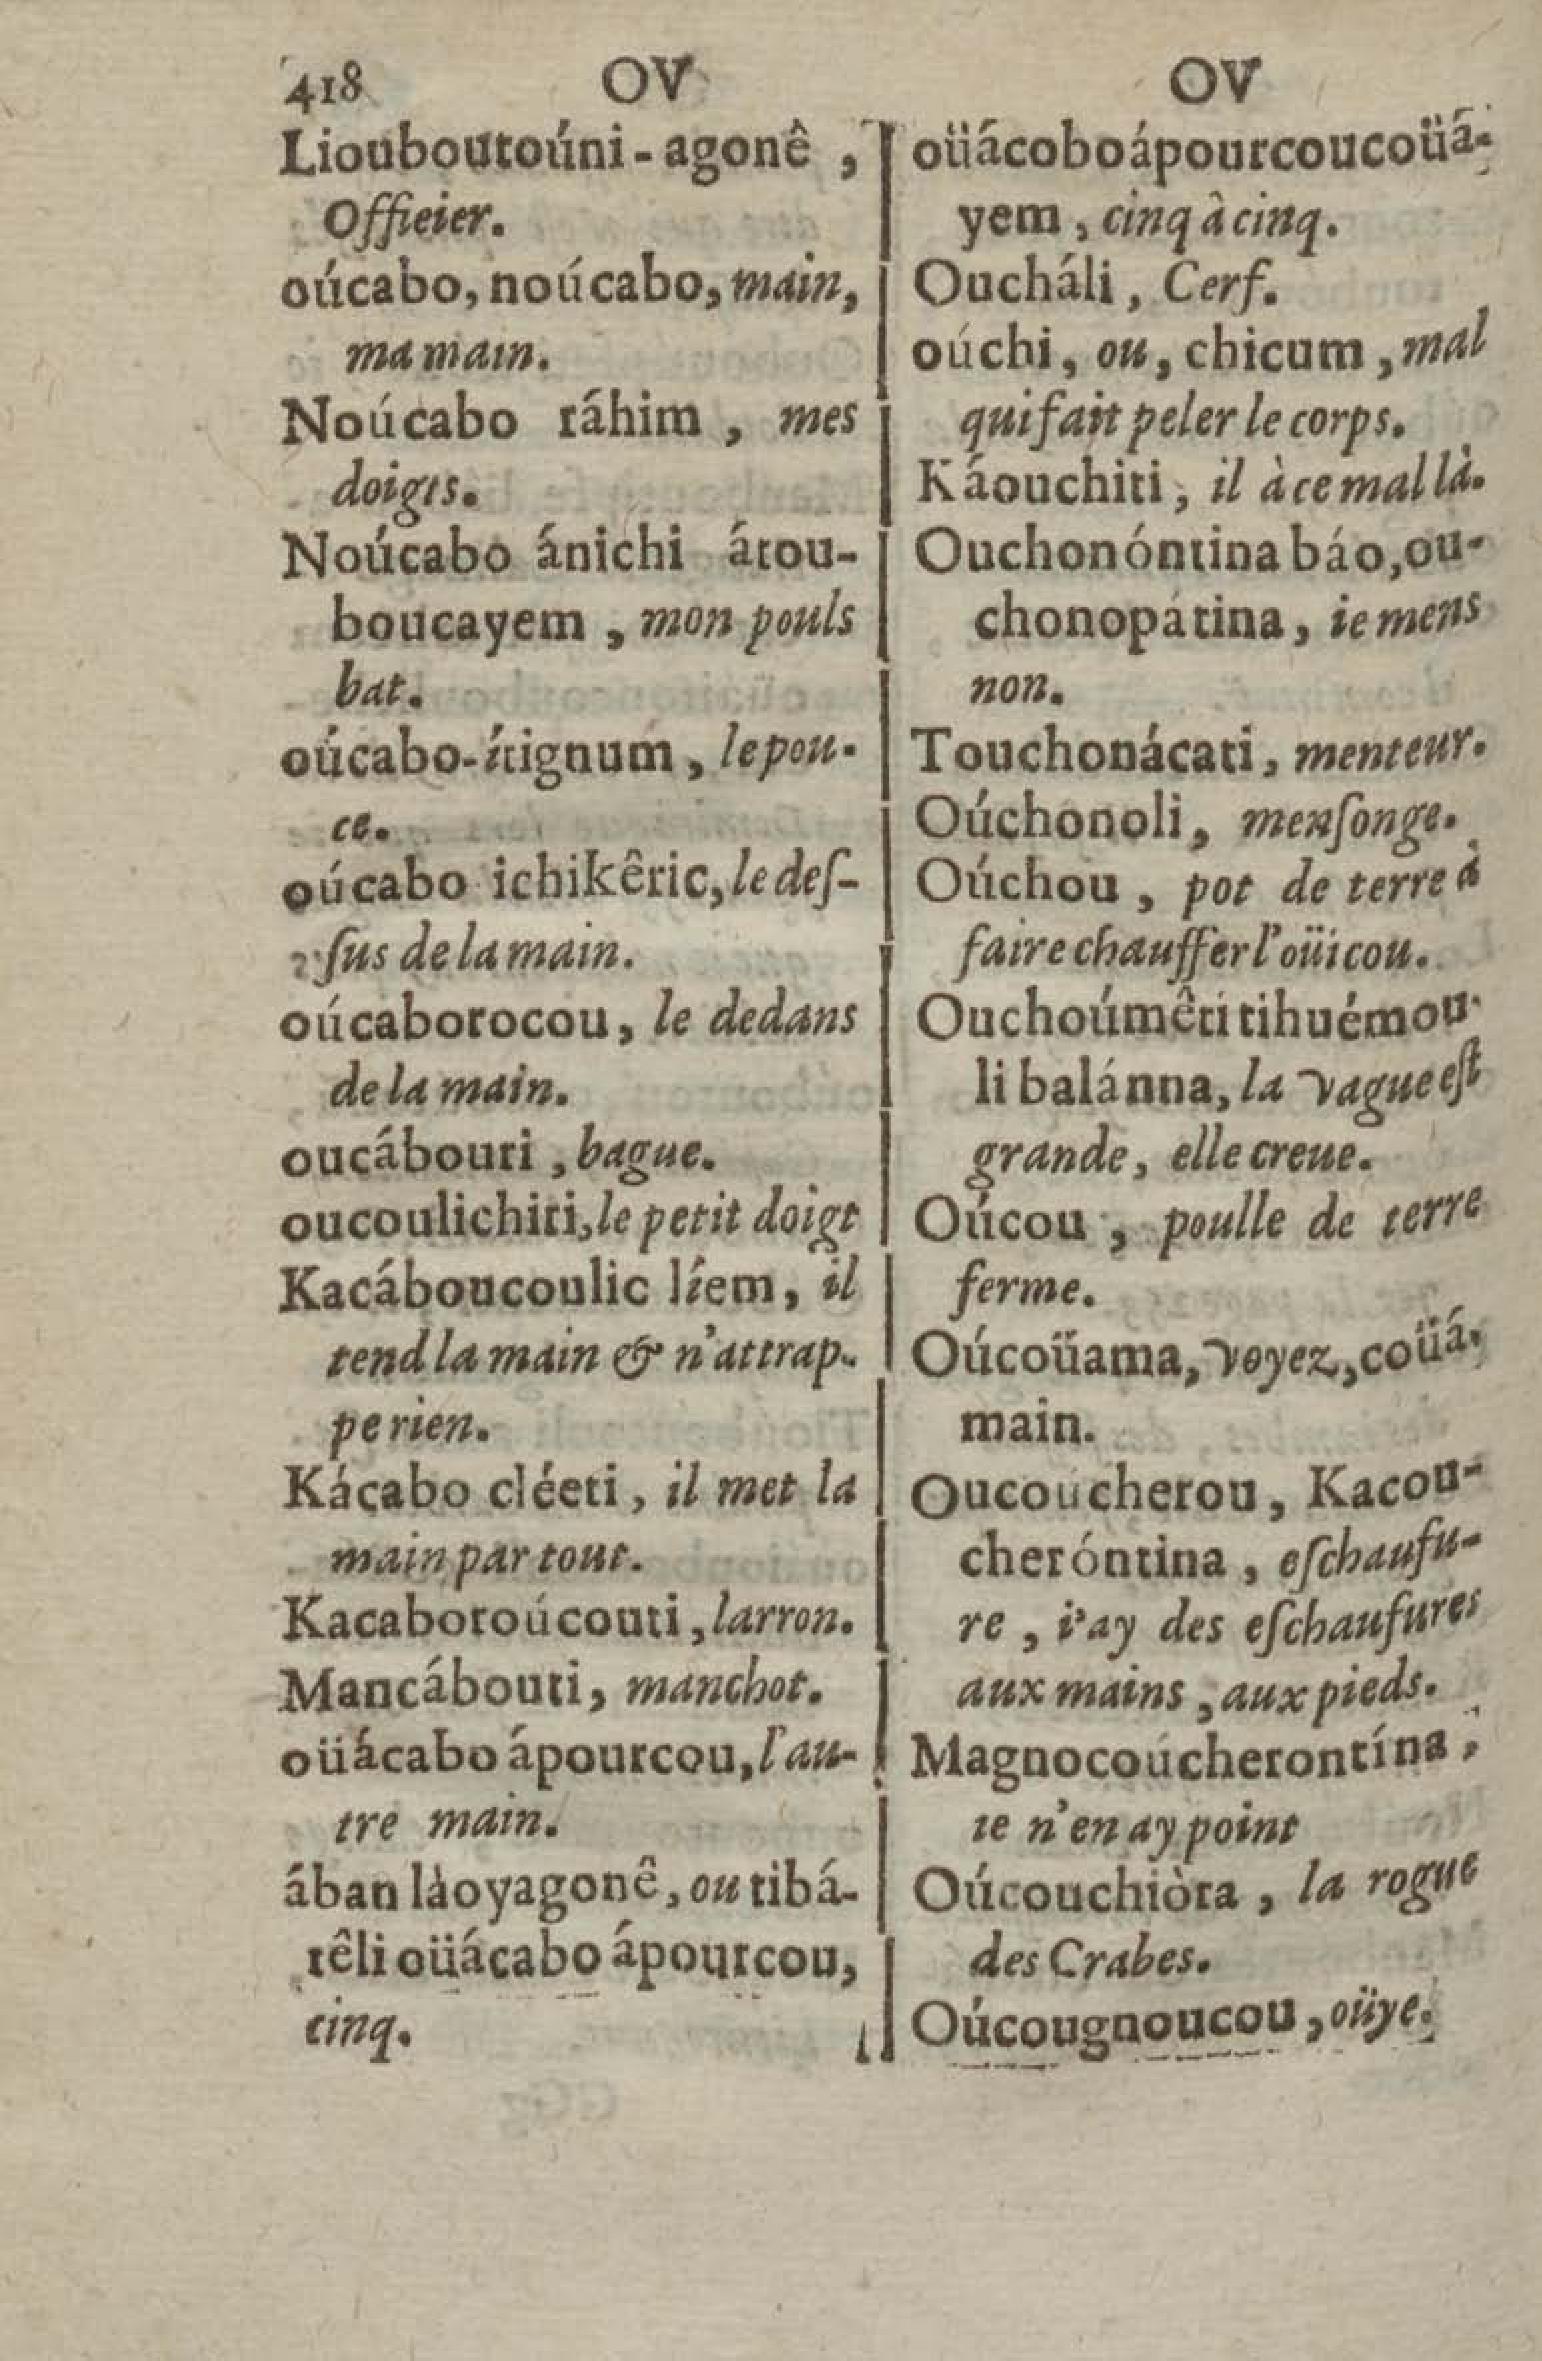 418 OV OV
Liouboutoúni-agonê,
Offieier.
oúcabo, noúcabo, main,
ma main.
Noúcabo ráhim, mes
doigts.
Noúcabo ánichi átou-
boucayem, mon pouls
bat.
oúcabo-ítignum, le pou-
ce.
oúcabo ichikêric, le des-
sus de la main.
oúcaborocou, le dedans
de la main.
oucábouri, bague.
oucoulichiti, le petit doigt
Kacáboucoulic líem, il
tend la main & n'attrap-
pe rien.
Kácabo cléeti, il met la
main par tout.
Kacaboroúcouti, larron.
Mancábouti, manchot.
oüácabo ápourcou, l'au-
tre main.
ában làoyagonê, ou tibá-
rêli oüácabo ápourcou,
cinq.
oüácoboápourcoucoüá-
yem, cinq à cinq.
Oucháli, Cerf.
oúchi, ou, chicum, mal
qui fait peler le corps.
Káouchiti, il à ce mal là.
Ouchonóntina báo, ou-
chonopátina, ie mens
non.
Touchonácati, menteur.
Oúchonoli, mensonge.
Oúchou, pot de terre à
faire chauffer l'oüicou.
Ouchoúmêti tihuémou-
li balánna, la vague est
grande, elle creue.
Oúcou, poulle de terre
ferme.
Oúcoüama, voyez, coüá-
main.
Oucoúcherou, Kacou-
cheróntina, eschaufu-
re, i'ay des eschaufures
aux mains, aux pieds.
Magnocoúcherontína,
ie n'en ay point
Oúcouchiòra, la rogue
des Crabes.
Oúcougnoucou, oüye.